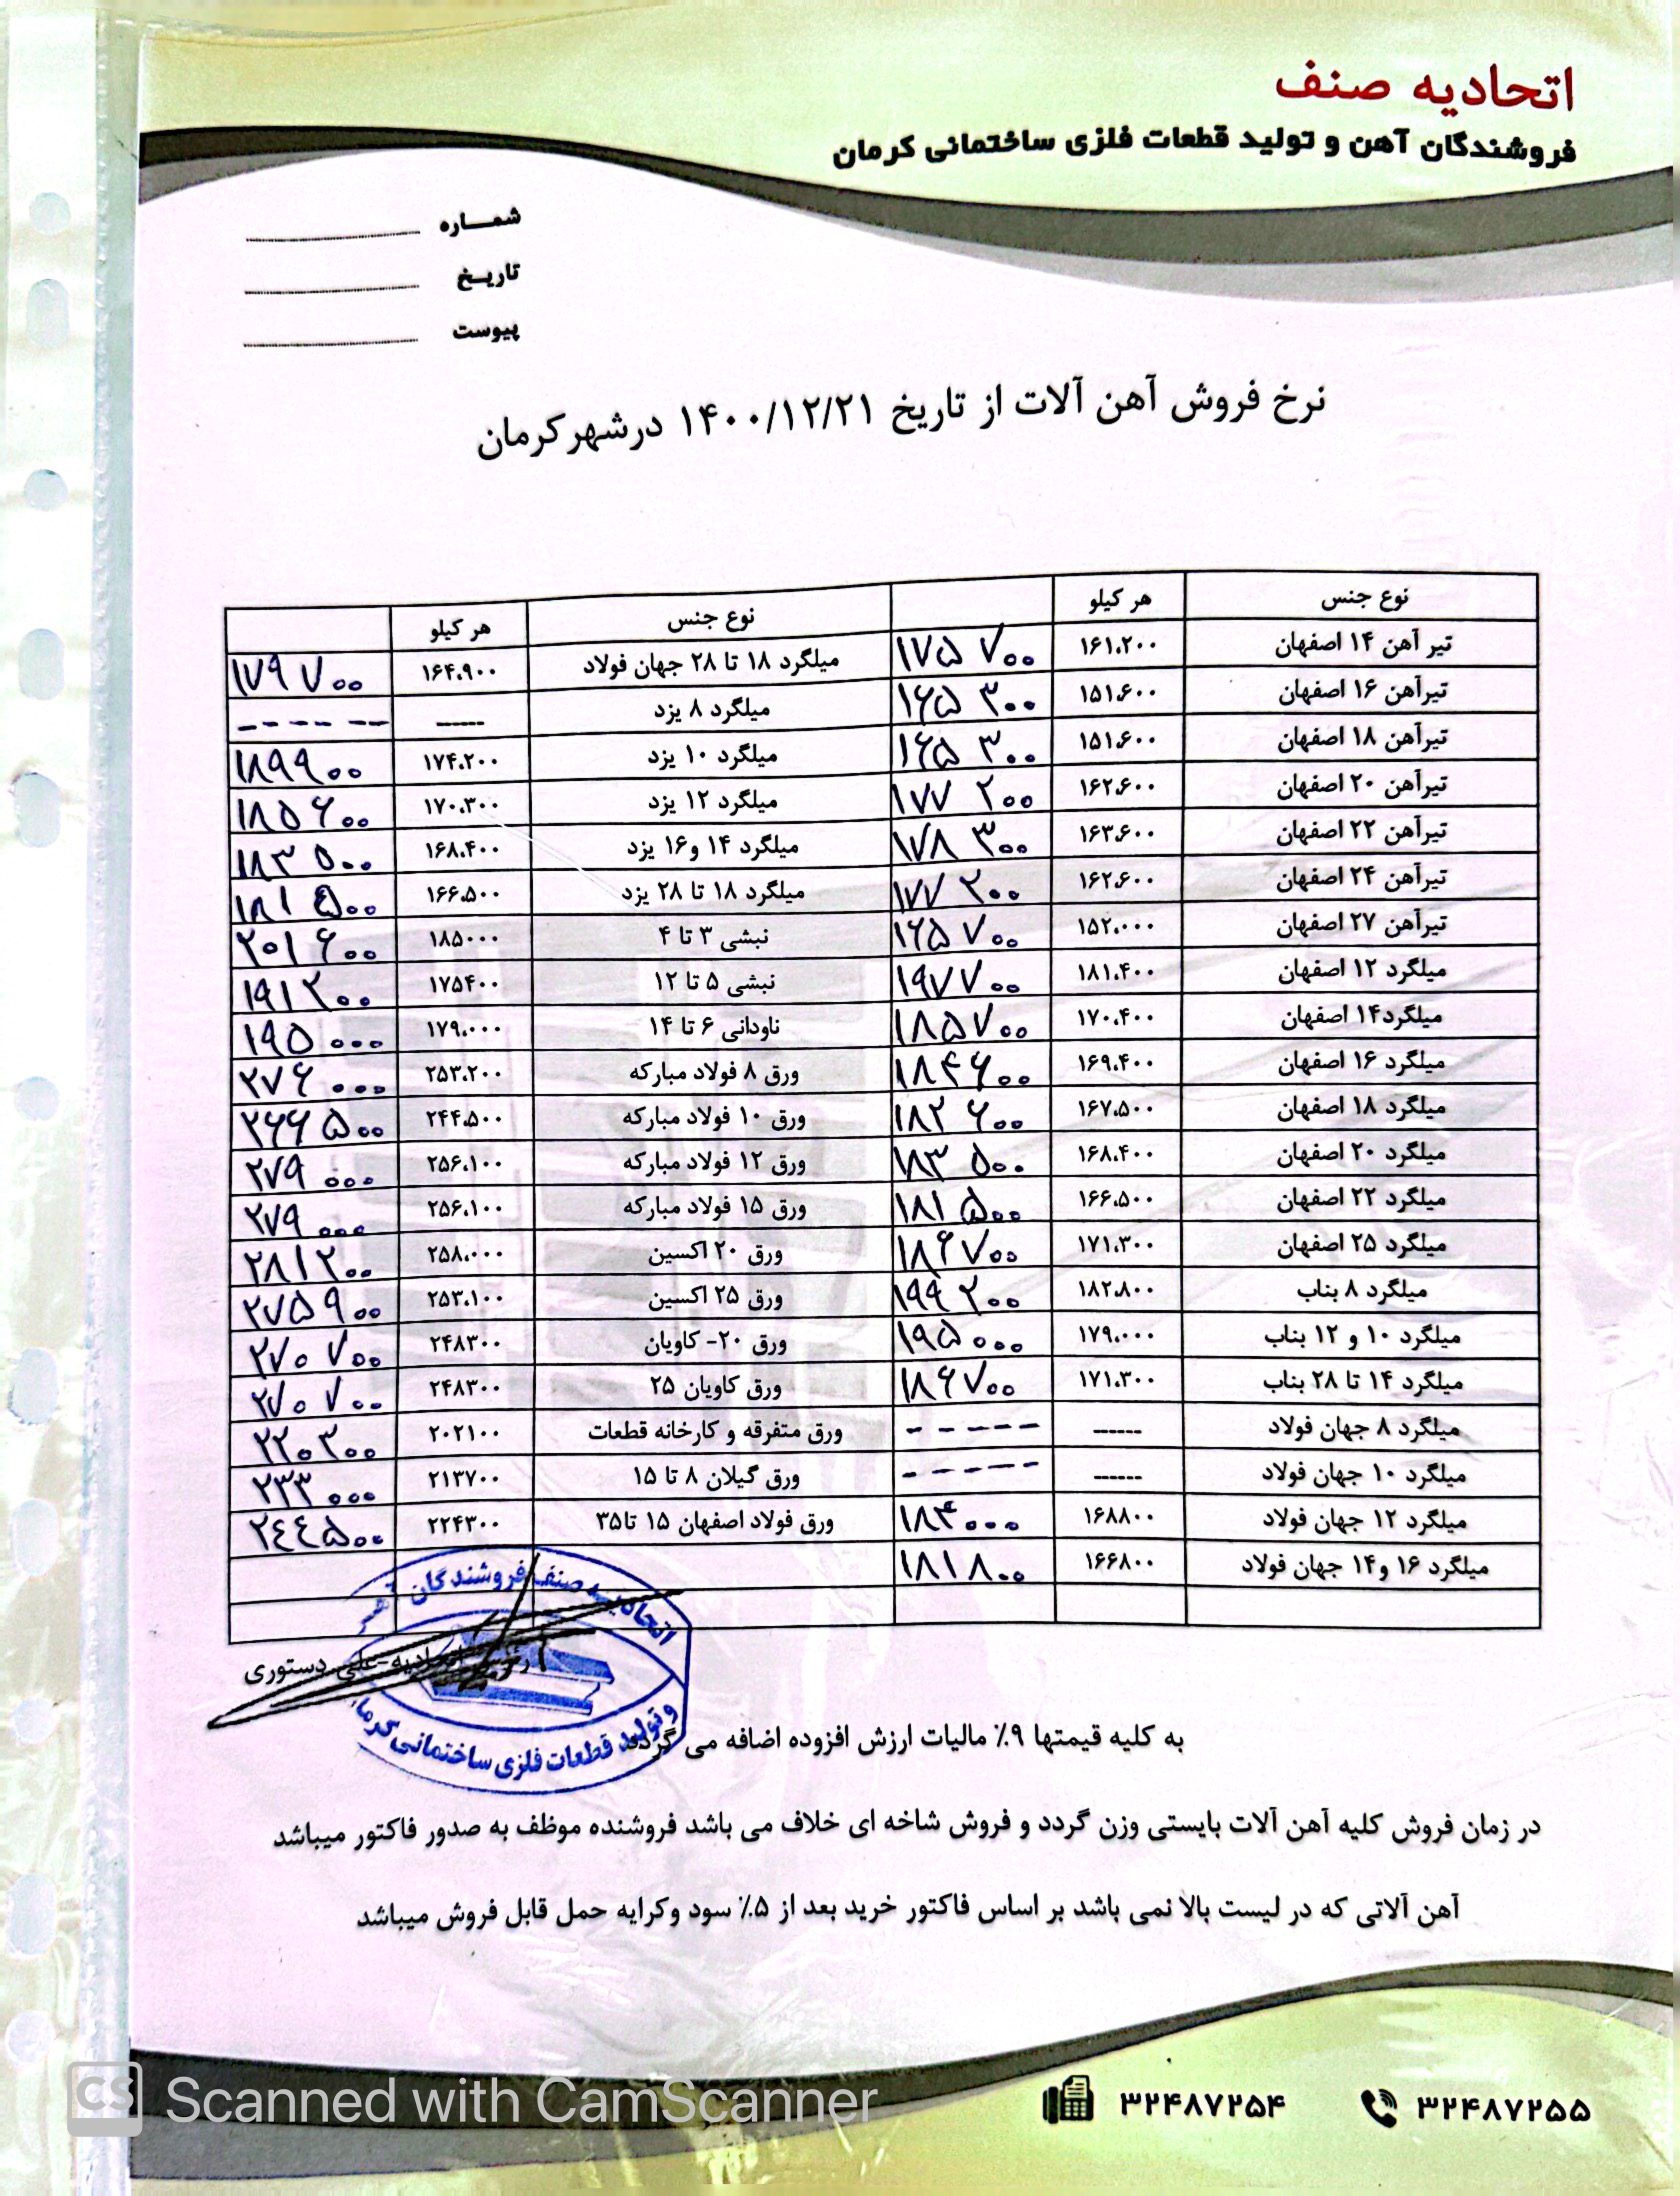 اتحادیه صنف
فروشندگان آهن و تولید قطعات فلزی ساختمانی کرمان
شمـــاره
تاریـخ
پیوست
نرخ فروش آهن آلات از تاریخ ۱۴۰۰/۱۲/۲۱ درشهرکرمان
نوع جنس هر کیلو نوع جنس هر کیلو
تیر آهن ۱۴ اصفهان ۱۶۱.۲۰۰ ۱۷۵۷۰۰ میلگرد ۱۸ تا ۲۸ جهان فولاد ۱۶۴.۹۰۰ ۱۷۹۷۰۰
تیرآهن ۱۶ اصفهان ۱۵۱.۶۰۰ ۱۶۵۳۰۰ میلگرد ۸ یزد ----- -----
تیرآهن ۱۸ اصفهان ۱۵۱.۶۰۰ ۱۶۵۳۰۰ میلگرد ۱۰ یزد ۱۷۴.۲۰۰ ۱۸۹۹۰۰
تیرآهن ۲۰ اصفهان ۱۶۲.۶۰۰ ۱۷۷۲۰۰ میلگرد ۱۲ یزد ۱۷۰.۳۰۰ ۱۸۵۶۰۰
تیرآهن ۲۲ اصفهان ۱۶۳.۶۰۰ ۱۷۸۳۰۰ میلگرد ۱۴ و۱۶ یزد ۱۶۸.۴۰۰ ۱۸۳۵۰۰
تیرآهن ۲۴ اصفهان ۱۶۲.۶۰۰ ۱۷۷۲۰۰ میلگرد ۱۸ تا ۲۸ یزد ۱۶۶.۵۰۰ ۱۸۱۵۰۰
تیرآهن ۲۷ اصفهان ۱۵۲.۰۰۰ ۱۶۵۷۰۰ نبشی ۳ تا ۴ ۱۸۵۰۰۰ ۲۰۱۶۰۰
میلگرد ۱۲ اصفهان ۱۸۱.۴۰۰ ۱۹۷۷۰۰ نبشی ۵ تا ۱۲ ۱۷۵۴۰۰ ۱۹۱۲۰۰
میلگرد۱۴ اصفهان ۱۷۰.۴۰۰ ۱۸۵۷۰۰ ناودانی ۶ تا ۱۴ ۱۷۹.۰۰۰ ۱۹۵۰۰۰
میلگرد ۱۶ اصفهان ۱۶۹.۴۰۰ ۱۸۴۶۰۰ ورق ۸ فولاد مبارکه ۲۵۳.۲۰۰ ۲۷۶۰۰۰
میلگرد ۱۸ اصفهان ۱۶۷.۵۰۰ ۱۸۲۶۰۰ ورق ۱۰ فولاد مبارکه ۲۴۴.۵۰۰ ۲۶۶۵۰۰
میلگرد ۲۰ اصفهان ۱۶۸.۴۰۰ ۱۸۳۵۰۰ ورق ۱۲ فولاد مبارکه ۲۵۶.۱۰۰ ۲۷۹۰۰۰
میلگرد ۲۲ اصفهان ۱۶۶.۵۰۰ ۱۸۱۵۰۰ ورق ۱۵ فولاد مبارکه ۲۵۶.۱۰۰ ۲۷۹۰۰۰
میلگرد ۲۵ اصفهان ۱۷۱.۳۰۰ ۱۸۶۷۰۰ ورق ۲۰ اکسین ۲۵۸.۰۰۰ ۲۸۱۲۰۰
میلگرد ۸ بناب ۱۸۲.۸۰۰ ۱۹۹۲۰۰ ورق ۲۵ اکسین ۲۵۳.۱۰۰ ۲۷۵۹۰۰
میلگرد ۱۰ و ۱۲ بناب ۱۷۹.۰۰۰ ۱۹۵۰۰۰ ورق ۲۰- کاویان ۲۴۸۳۰۰ ۲۷۰۷۰۰
میلگرد ۱۴ تا ۲۸ بناب ۱۷۱.۳۰۰ ۱۸۶۷۰۰ ورق کاویان ۲۵ ۲۴۸۳۰۰ ۲۷۰۷۰۰
میلگرد ۸ جهان فولاد ------ ----- ورق متفرقه و کارخانه قطعات ۲۰۲۱۰۰ ۲۲۰۳۰۰
میلگرد ۱۰ جهان فولاد ------ ----- ورق گیلان ۸ تا ۱۵ ۲۱۳۷۰۰ ۲۳۳۰۰۰
میلگرد ۱۲ جهان فولاد ۱۶۸۸۰۰ ۱۸۴۰۰۰ ورق فولاد اصفهان ۱۵ تا۳۵ ۲۲۴۳۰۰ ۲۴۴۵۰۰
میلگرد ۱۶ و۱۴ جهان فولاد ۱۶۶۸۰۰ ۱۸۱۸۰۰
اتحادیه صنف فروشندگان
رئیس اتحادیه-علی دستوری
و تولید قطعات فلزی ساختمانی کرمان
به کلیه قیمتها ۹٪ مالیات ارزش افزوده اضافه می گردد
در زمان فروش کلیه آهن آلات بایستی وزن گردد و فروش شاخه ای خلاف می باشد فروشنده موظف به صدور فاکتور میباشد
آهن آلاتی که در لیست بالا نمی باشد بر اساس فاکتور خرید بعد از ۵٪ سود وکرایه حمل قابل فروش میباشد
۳۲۴۸۷۲۵۵ ۳۲۴۸۷۲۵۴
CS Scanned with CamScanner